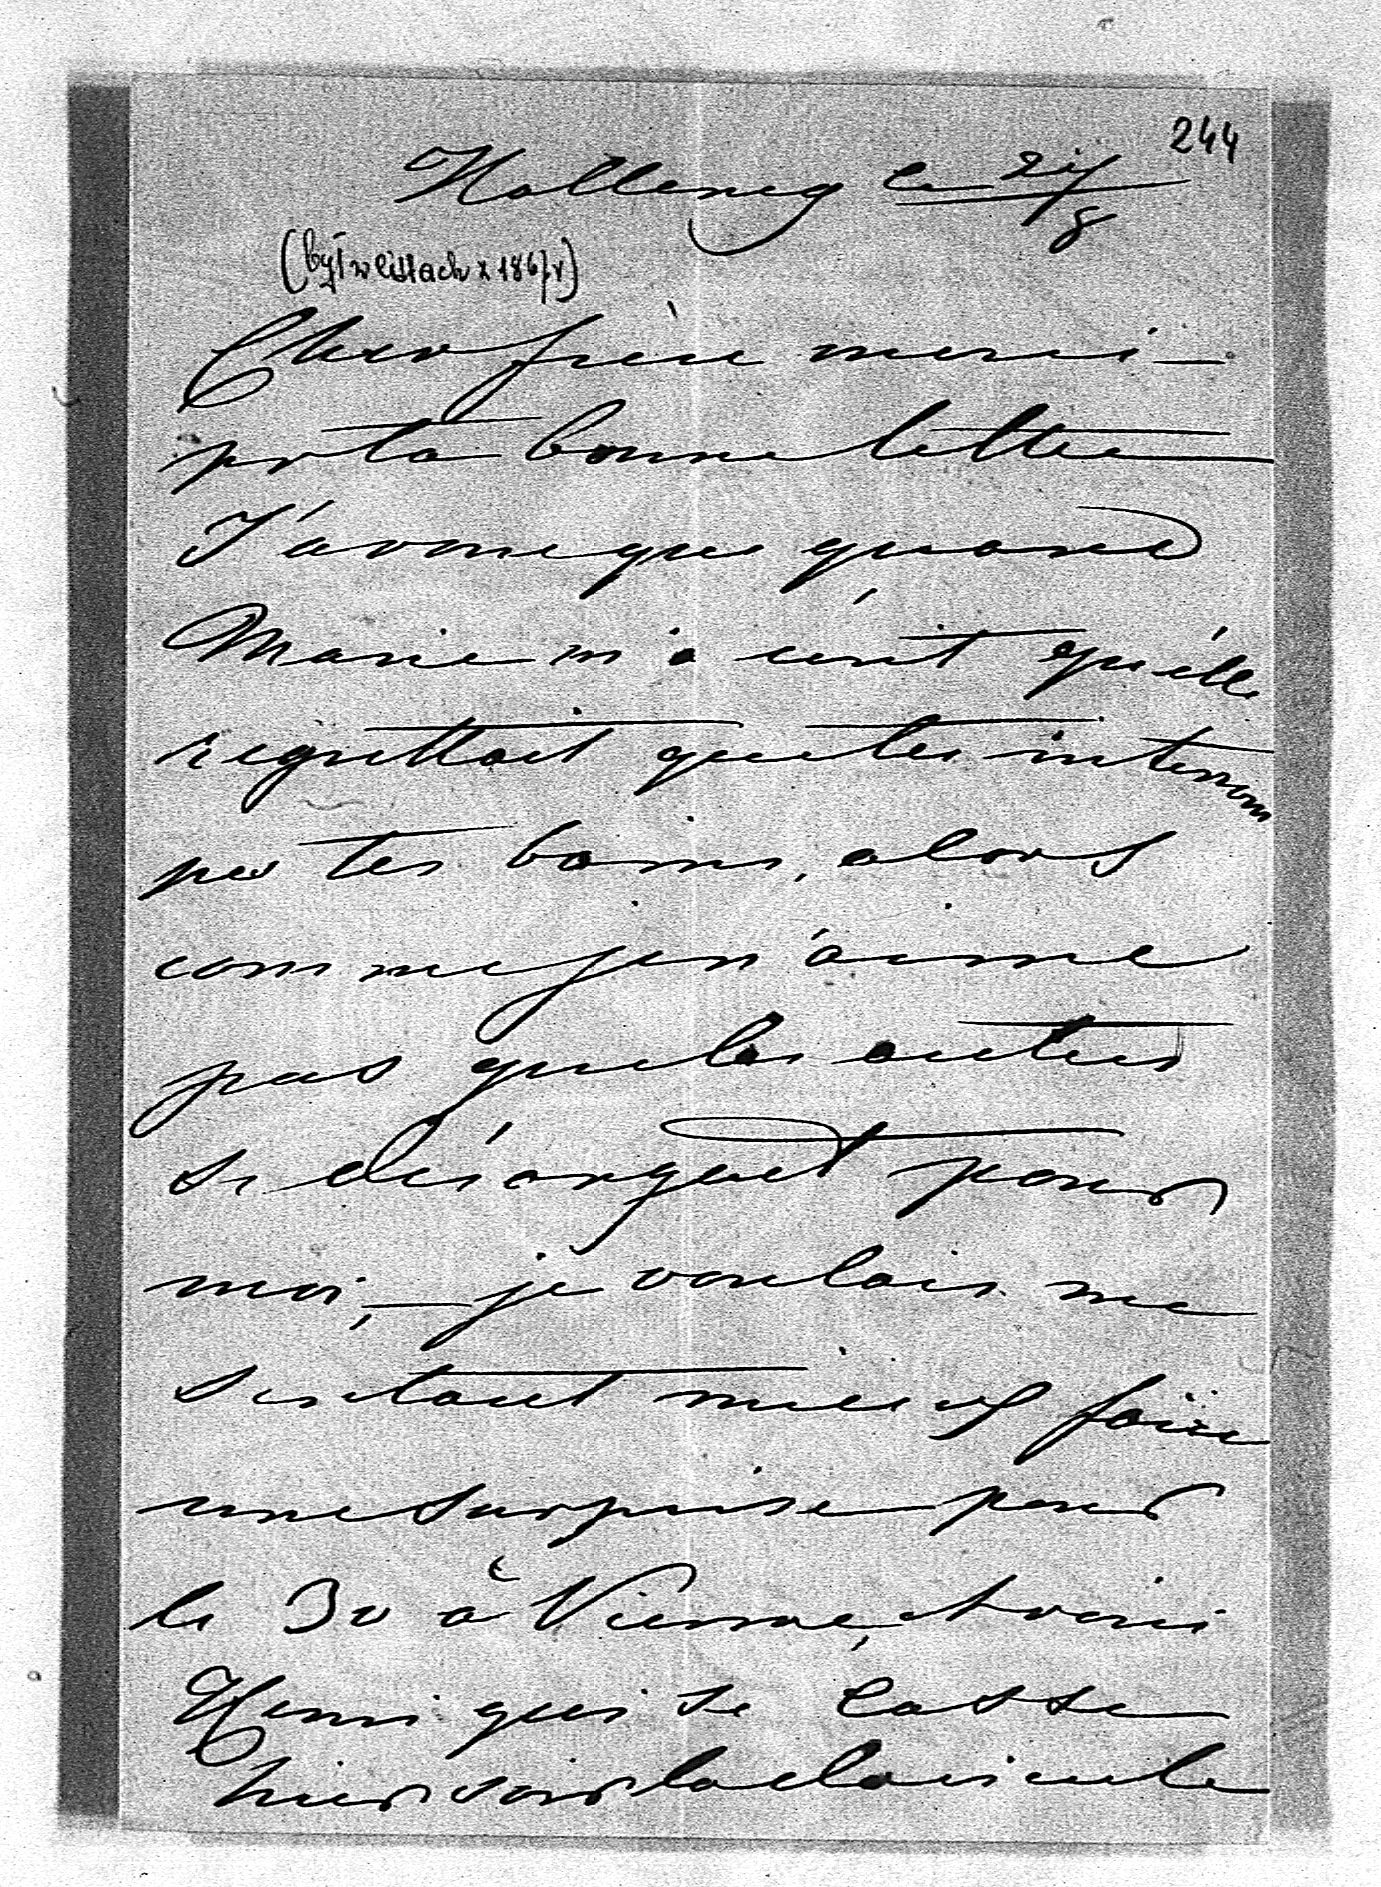 244
Hollenegg le 24/8
(był w listach z 1867 r)
Cher frère merci —
pr ta bonne lettre
J'avoue que quand
Marie m'a écrit qu'elle
regrettait que tu interrom
pes tes bains, alors
comme je n'aime
pas que les autres
se dérangent pour
moi, — je voulais me
sentant mieux faire
une surprise pour
le 30 à Vienne, et voici
Henri qui se casse
hier soir la clavicule